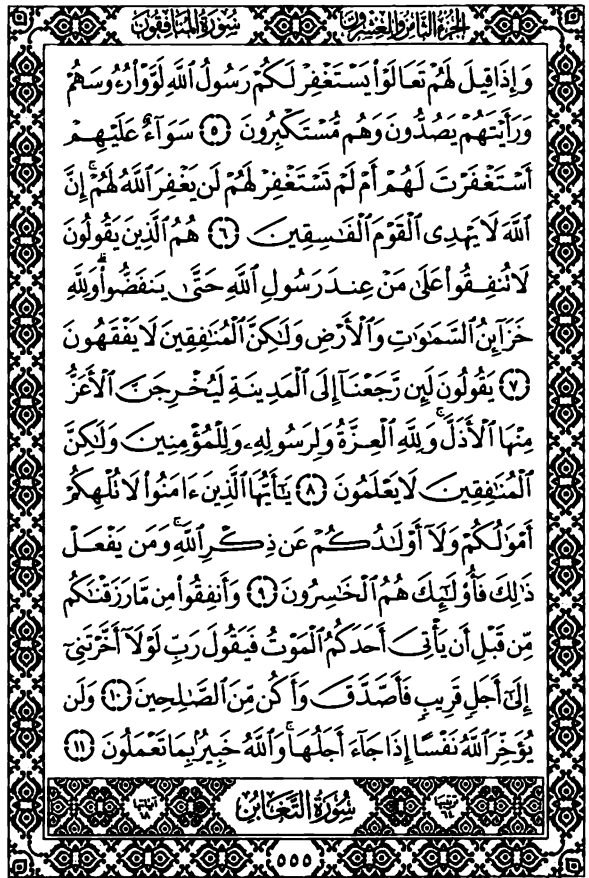 الجزء الثامن والعشرون سورة المنافقون
وَإِذَا قِيلَ لَهُمْ تَعَالَوْا۟ يَسْتَغْفِرْ لَكُمْ رَسُولُ ٱللَّهِ لَوَّوْا۟ رُءُوسَهُمْ
وَرَأَيْتَهُمْ يَصُدُّونَ وَهُم مُّسْتَكْبِرُونَ ٥ سَوَآءٌ عَلَيْهِمْ
أَسْتَغْفَرْتَ لَهُمْ أَمْ لَمْ تَسْتَغْفِرْ لَهُمْ لَن يَغْفِرَ ٱللَّهُ لَهُمْ ۚ إِنَّ
ٱللَّهَ لَا يَهْدِى ٱلْقَوْمَ ٱلْفَـٰسِقِينَ ٦ هُمُ ٱلَّذِينَ يَقُولُونَ
لَا تُنفِقُوا۟ عَلَىٰ مَنْ عِندَ رَسُولِ ٱللَّهِ حَتَّىٰ يَنفَضُّوا۟ ۗ وَلِلَّهِ
خَزَآئِنُ ٱلسَّمَـٰوَٰتِ وَٱلْأَرْضِ وَلَـٰكِنَّ ٱلْمُنَـٰفِقِينَ لَا يَفْقَهُونَ
٧ يَقُولُونَ لَئِن رَّجَعْنَآ إِلَى ٱلْمَدِينَةِ لَيُخْرِجَنَّ ٱلْأَعَزُّ
مِنْهَا ٱلْأَذَلَّ ۚ وَلِلَّهِ ٱلْعِزَّةُ وَلِرَسُولِهِۦ وَلِلْمُؤْمِنِينَ وَلَـٰكِنَّ
ٱلْمُنَـٰفِقِينَ لَا يَعْلَمُونَ ٨ يَـٰٓأَيُّهَا ٱلَّذِينَ ءَامَنُوا۟ لَا تُلْهِكُمْ
أَمْوَٰلُكُمْ وَلَآ أَوْلَـٰدُكُمْ عَن ذِكْرِ ٱللَّهِ ۚ وَمَن يَفْعَلْ
ذَٰلِكَ فَأُو۟لَـٰٓئِكَ هُمُ ٱلْخَـٰسِرُونَ ٩ وَأَنفِقُوا۟ مِن مَّا رَزَقْنَـٰكُم
مِّن قَبْلِ أَن يَأْتِىَ أَحَدَكُمُ ٱلْمَوْتُ فَيَقُولَ رَبِّ لَوْلَآ أَخَّرْتَنِىٓ
إِلَىٰٓ أَجَلٍ قَرِيبٍ فَأَصَّدَّقَ وَأَكُن مِّنَ ٱلصَّـٰلِحِينَ ١٠ وَلَن
يُؤَخِّرَ ٱللَّهُ نَفْسًا إِذَا جَآءَ أَجَلُهَا ۚ وَٱللَّهُ خَبِيرٌۢ بِمَا تَعْمَلُونَ ١١
ترتيبها ٦٤ سورة التغابن آياتها ١٨
٥٥٥